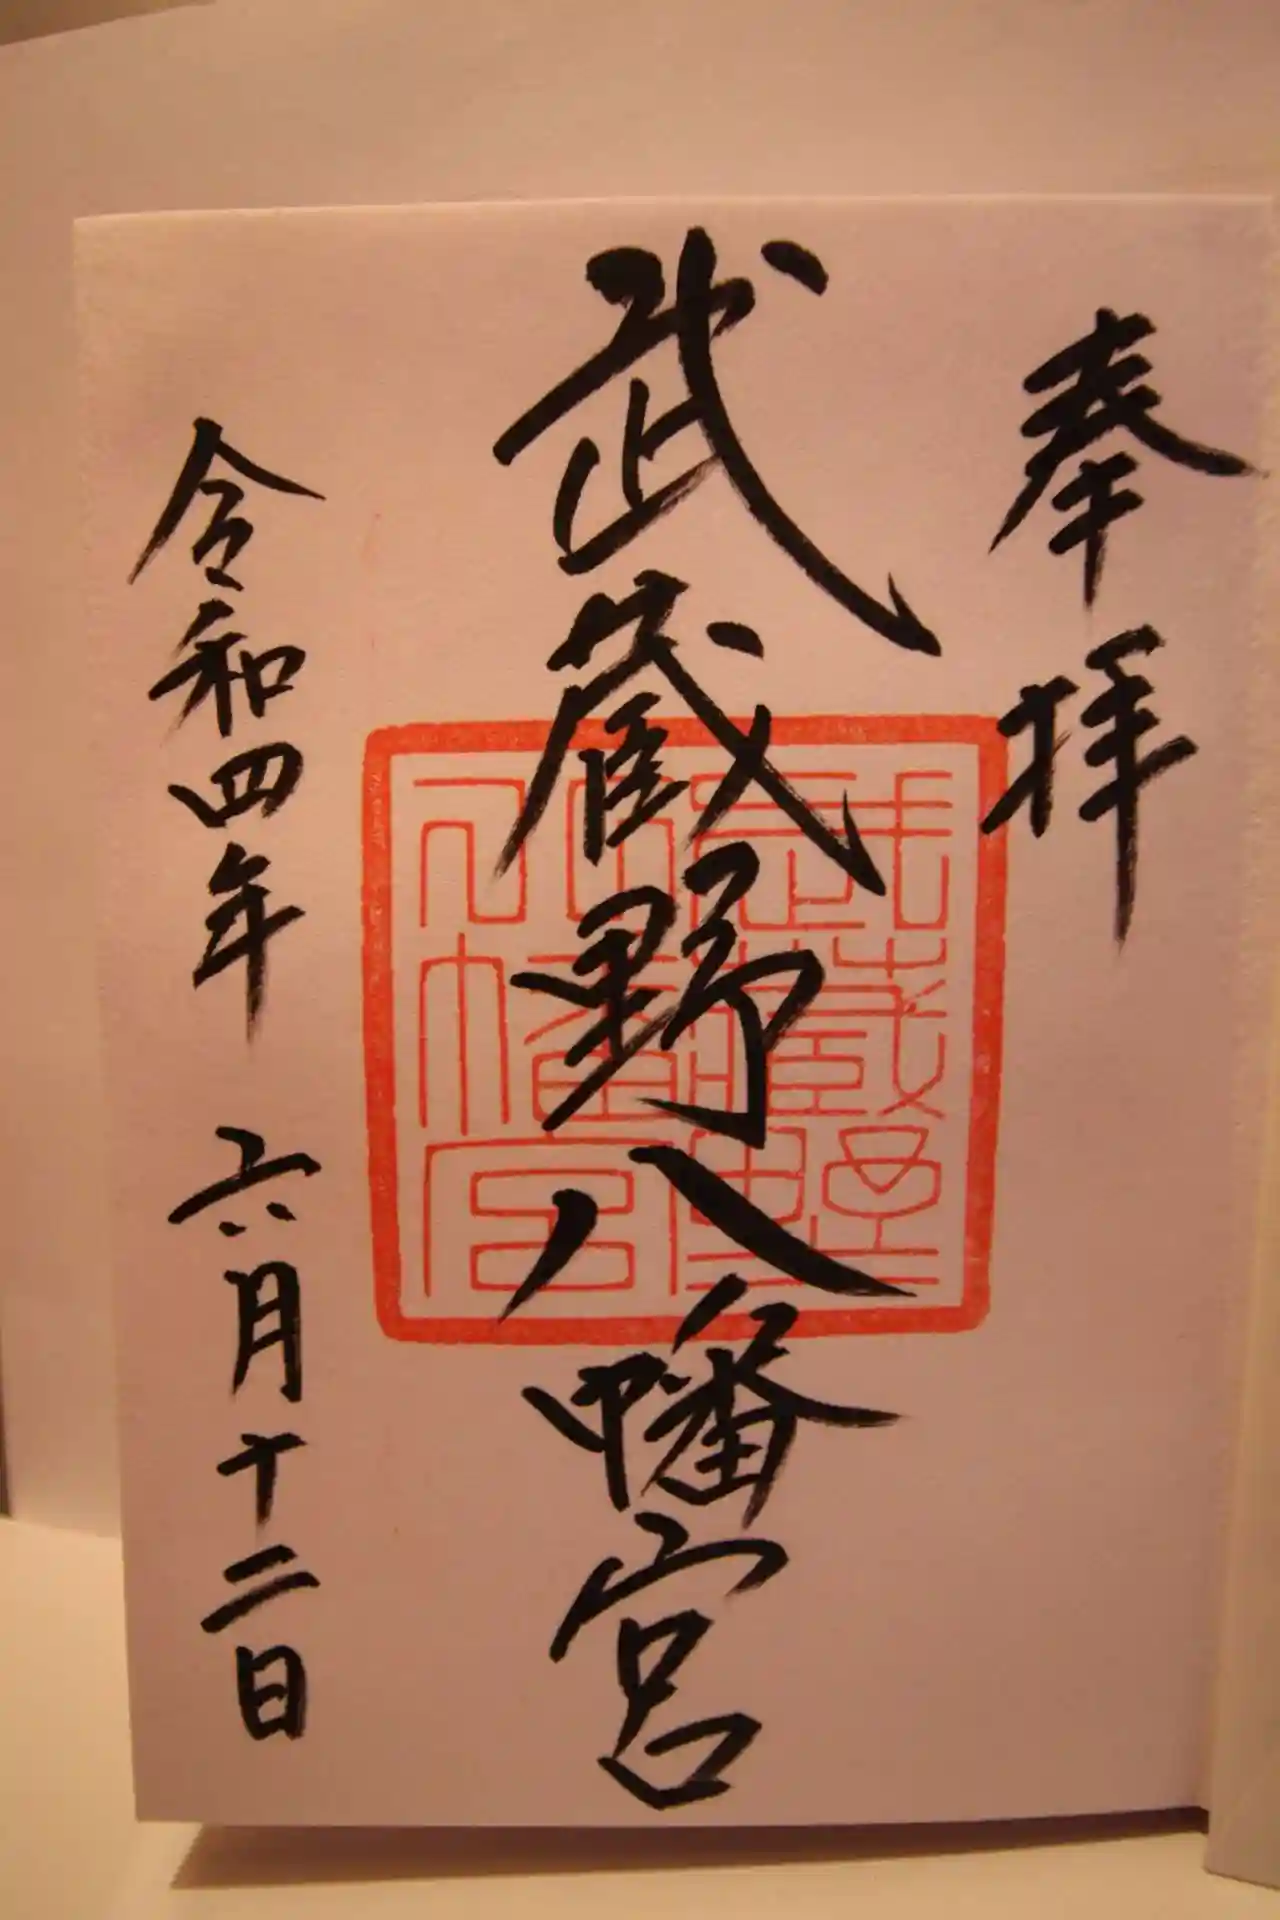 奉拝
武蔵野八幡宮
武蔵野八幡宮
令和四年 六月十二日